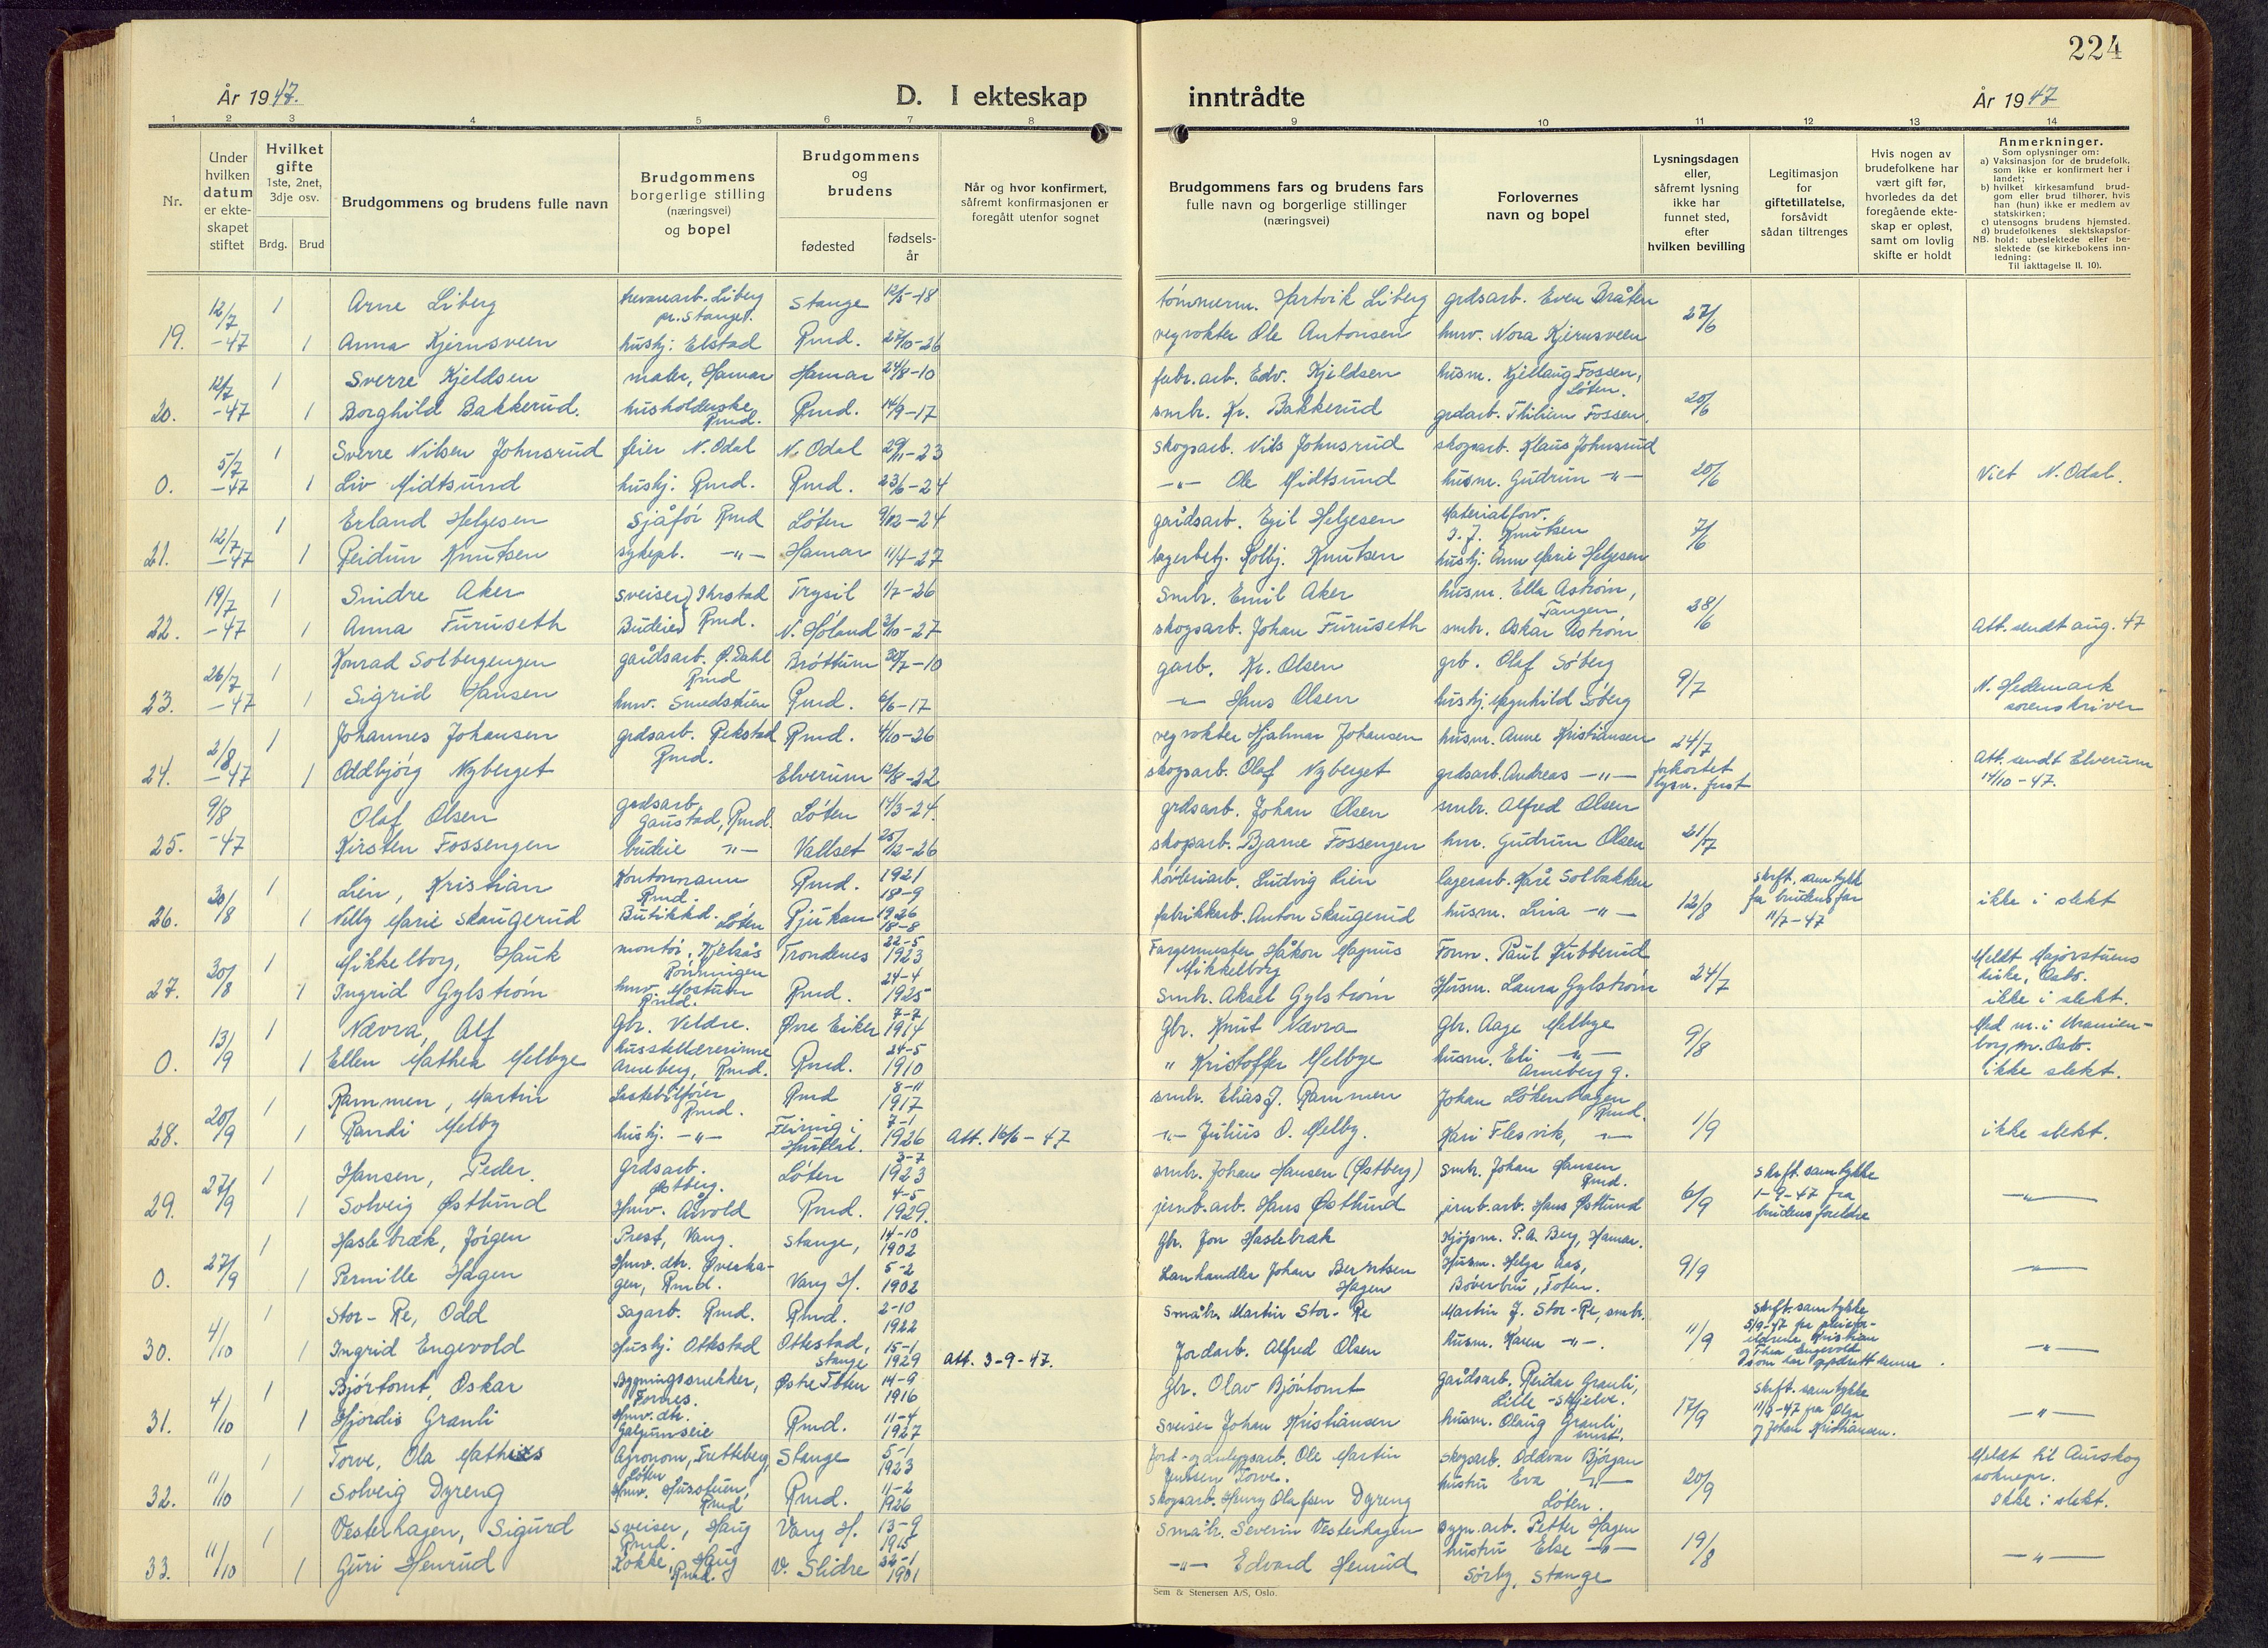 224
År 1947.
D. I ekteskap
inntrådte
År 1947
1 2 3 4 5 6 7 8
9 10 11 12 13 14
Nr.
Under hvilken datum er ekteskapet stiftet
Hvilket gifte 1ste, 2net, 3dje osv.
Brdg. Brud
Brudgommens og brudens fulle navn
Brudgommens borgerlige stilling (næringsvei) og bopel
Brudgommens og brudens
fødested
fødsels-år
Når og hvor konfirmert, såfremt konfirmasjonen er foregått utenfor sognet
Brudgommens fars og brudens fars fulle navn og borgerlige stillinger (næringsvei)
Forlovernes navn og bopel
Lysningsdagen eller, såfremt lysning ikke har funnet sted, efter hvilken bevilling
Legitimasjon for giftetillatelse, forsåvidt sådan tiltrenges
Hvis nogen av brudefolkene har vært gift før, hvorledes da det foregående ekteskap er opløst, samt om lovlig skifte er holdt
Anmerkninger.
Som oplysninger om:
a) Vaksinasjon for de brudefolk, som ikke er konfirmert her i landet;
b) hvilket kirkesamfund brudgom eller brud tilhører, hvis han (hun) ikke er medlem av statskirken;
c) utensogns brudens hjemsted.
d) brudefolkenes slektskapsforhold: ubeslektede eller beslektede (se kirkebokens innledning:
NB.
Til iakttagelse II. 10).
12/7 1 Arne Liberg Liberg pr. Stange. Stange 12/5-18 tømmerm. Hartvik Liberg grdsarb. Even Bråten 27/6
19. -47 1 Anna Kjernsveen hushj. Elstad Rmd. 27/10-26 vegvokter Ole Antonsen husv. Nora Kjernsveen
12/7 1 Sverre Kjeldsen maler, Hamar Hamar 24/8-10 fabr. arb. Edv. Kjeldsen husm. Kjellaug Fossen, Løten.
20. -47 1 Borghild Bakkerud. husholderske Rmd. Rmd. 14/9-17 smbr. Kr. Bakkerud grdarb. Fossen. 20/6
5/7 1 Sverre Nilsen Johnsrud feier N. Odal N. Odal 29/11-23 skogsarb. Nils Johnsrud skogsarb. Klaus Johnsrud
0. -47 1 Liv Midtsund hushj. Rmd. Rmd. 23/6-24 -"- Ole Midtsund husm. Gudrun -"- 20/6 Viet N. Odal.
12/7 1 Erland Helgesen Sjåfør Rmd Løten 9/12-24 gårdsarb. Egil Helgesen Materialforv. J. J. Knutsen 7/6
21. -47 1 Reidun Knutsen sykepl. -"- Hamar 11/4-27 lagerbetj. Kolbj. Knutsen hushj. Ann Marie Helgesen
19/7 1 Sindre Aker sveiser Ihrstad Trysil 1/7-26 Smbr. Emil Aker husm. Ella Åstrøm, Tangen 28/6
22. -47 1 Anna Furuseth Budeie Rmd. N. Høland 3/10-27 skogsarb. Johan Furuseth smbr. Oskar Åstrøm Att. sendt aug. 47
26/7 1 Konrad Solbergengen gårdsarb. Ø. Dahl Rmd Brøttum 30/7-10 garb. Kr. Olsen grb. Olaf Søberg 9/7
23. -47 1 Sigrid Hansen husv. Smedstuen Rmd. 6/6-17 -"- Hans Olsen hushj. Magnhild Søberg N. Hedemark sorenskriver
2/8 1 Johannes Johansen grdsarb. Rekstad Rmd. Rmd. 4/10-26 vegvokter Hjalmar Johansen husm. Anne Kristiansen 24/7
24. -47 1 Oddbjørg Nyberget Elverum 12/8-22 skogsarb. Olaf Nyberget grdsarb. Andreas -"- forkortet lysn. frist Att. sendt Elverum 14/10-47.
9/8 Olaf Olsen grdsarb. Gaustad, Rmd. Løten 14/3-24 grdsarb. Johan Olsen smbr. Alfred Olsen 21/7
25. -47 Kirsten Fossengen budeie -"- Vallset 25/12-26 skogsarb. Bjarne Fossengen hm. Gudrun Olsen
30/8 1 Lien, Kristian Kontormann Rmd. Rmd. 1921 18-9 høvleriarb. Ludvig Lien lagerarb. Kåre Solbakken 12/8 skrft. samtykk fra brudens far 11/7-47 ikke i slekt
26. 1 Nelly Marie Skaugerud Butikkd. Løten Rjukan 1926 18-8 fabrikkarb. Anton Skaugerud husm. Lina -"-
30/8 1 Mikkelborg, Hauk montør, Kjelsås Trondenes 22-5 1923 Fargermester Håkon Magnus Mikkelborg Form. Paul Kubberud 24/7 Meldt Majorstuens kirke, Oslo. ikke i slekt.
27. 1 Ingrid Gylstrøm husv. Rmd. Rmd. 24-4 1925 Smbr. Aksel Gylstrøm Husm. Laura Gylstrøm
13/9 1 Nævra, Alf Gbr. Veldre. Øvre Eiker 7-7 1914 Gbr. Knut Nævra Gbr. Aage Melbye 9/8 Med m. i Uranienborg m. Oslo. ikke slekt.
0. 1 Ellen Mathea Melbye husstellærerinne Arneberg, Rmd. Rmd. 24-5 1910 " Kristoffer Melbye husm. Eli -"- Arneberg g.
20/9 1 Rammen, Martin Lastebilfører Rmd. Rmd 8-11 1917 smbr. Elias J. Rammen Johan Løkenhagen Rmd. 1/9
28. 1 Randi Melby hushj. -"- Feiring i Hurdal. 7-1 1926 Att. 16/6-47 -"- Julius O. Melby. Kari Flesvik, -"- ikke slekt.
27/9 1 Hansen, Peder. Grdsarb. Østberg. Løten 3-7 1923 smbr. Johan Hansen (Østberg) Smbr. Johan Hansen Rmd. 6/9 skrft. samtykke 1-9-47 fra brudens foreldre -"-
29. 1 Solveig Østlund Husv. Åsvold Rmd. 4-5 1929. jernb.arb. Hans Østlund jernb.arb. Hans Østlund
27/9 1 Haslebræk, Jørgen Prest, Vang. Stange, 14-10 1902 Gbr. Jon Haslebræk Kjøpm. P.A. Berg, Hamar. 9/9 -"-
0. 1 Pernille Hagen Husv. dtr. Øverhagen, Rmd. Vang H. 5-2 1902 Lanhandler Johan Berntsen Hagen Husm. Helga Aas, Bøverbru, Toten.
4/10 1 Stor-Re, Odd Sagarb. Rmd. Rmd. 2-10 1922 Småbr. Martin Stor-Re Martin J. Stor-Re, smbr. 11/9 skrft. samtykke 5/9-47 fra pleiefor-eldrene, Kristian og Thea Engevold som har oppdratt henne. -"-
30. 1 Ingrid Engevold Hushj. Ottestad Ottestad, Stange 15-1 1929 Att. 3-9-47. Jordarb. Alfred Olsen husm. Karen -"-.
4/10 1 Bjørtomt, Oskar Bygningssnekker, Fornes. Østre Toten 14-9 1916 Gbr. Olav Bjørtomt Gårdsarb. Reidar Granli, Lille-Skjelve. 17/9 skrft. samtykke 11/9-47 fra Olga og Johan Kristiansen. -"-
31. 1 Hjørdis Granli Husv. dtr. Galgumseie Rmd. 11-4 1927 Sveiser Johan Kristiansen husm. Olaug Granli
11/10 1 Torve, Ola Mathias Agronom, Fretteberg, Løten Stange 5-1 1923 Jord- og anleggsarb. Ole Martin Jenssen Torve. Skogsarb. Oddvar Bjørgan 20/9 Meldt til Aurskog soknepr. Ikke i slekt.
32. 1 Solveig Dyreng Husv. Husstuen, Rmd Rmd. 11-2 1926 Skogsarb. Henry Olafsen Dyreng hustru Eva -"- Løten.
11/10 1 Vesterhagen, Sigurd Sveiser, Haug Rmd. Vang H. 13-9 1915 Småbr. Severin Vesterhagen Bygn.arb. Petter Hagen 19/8 -"-
33. 1 Guri Henrud Kokke, Haug Rmd. V. Slidre 22-1 1901 -"- Edvard Henrud hustru Else -"- Sørby, Stange
Sem & Stenersen A/S, Oslo.